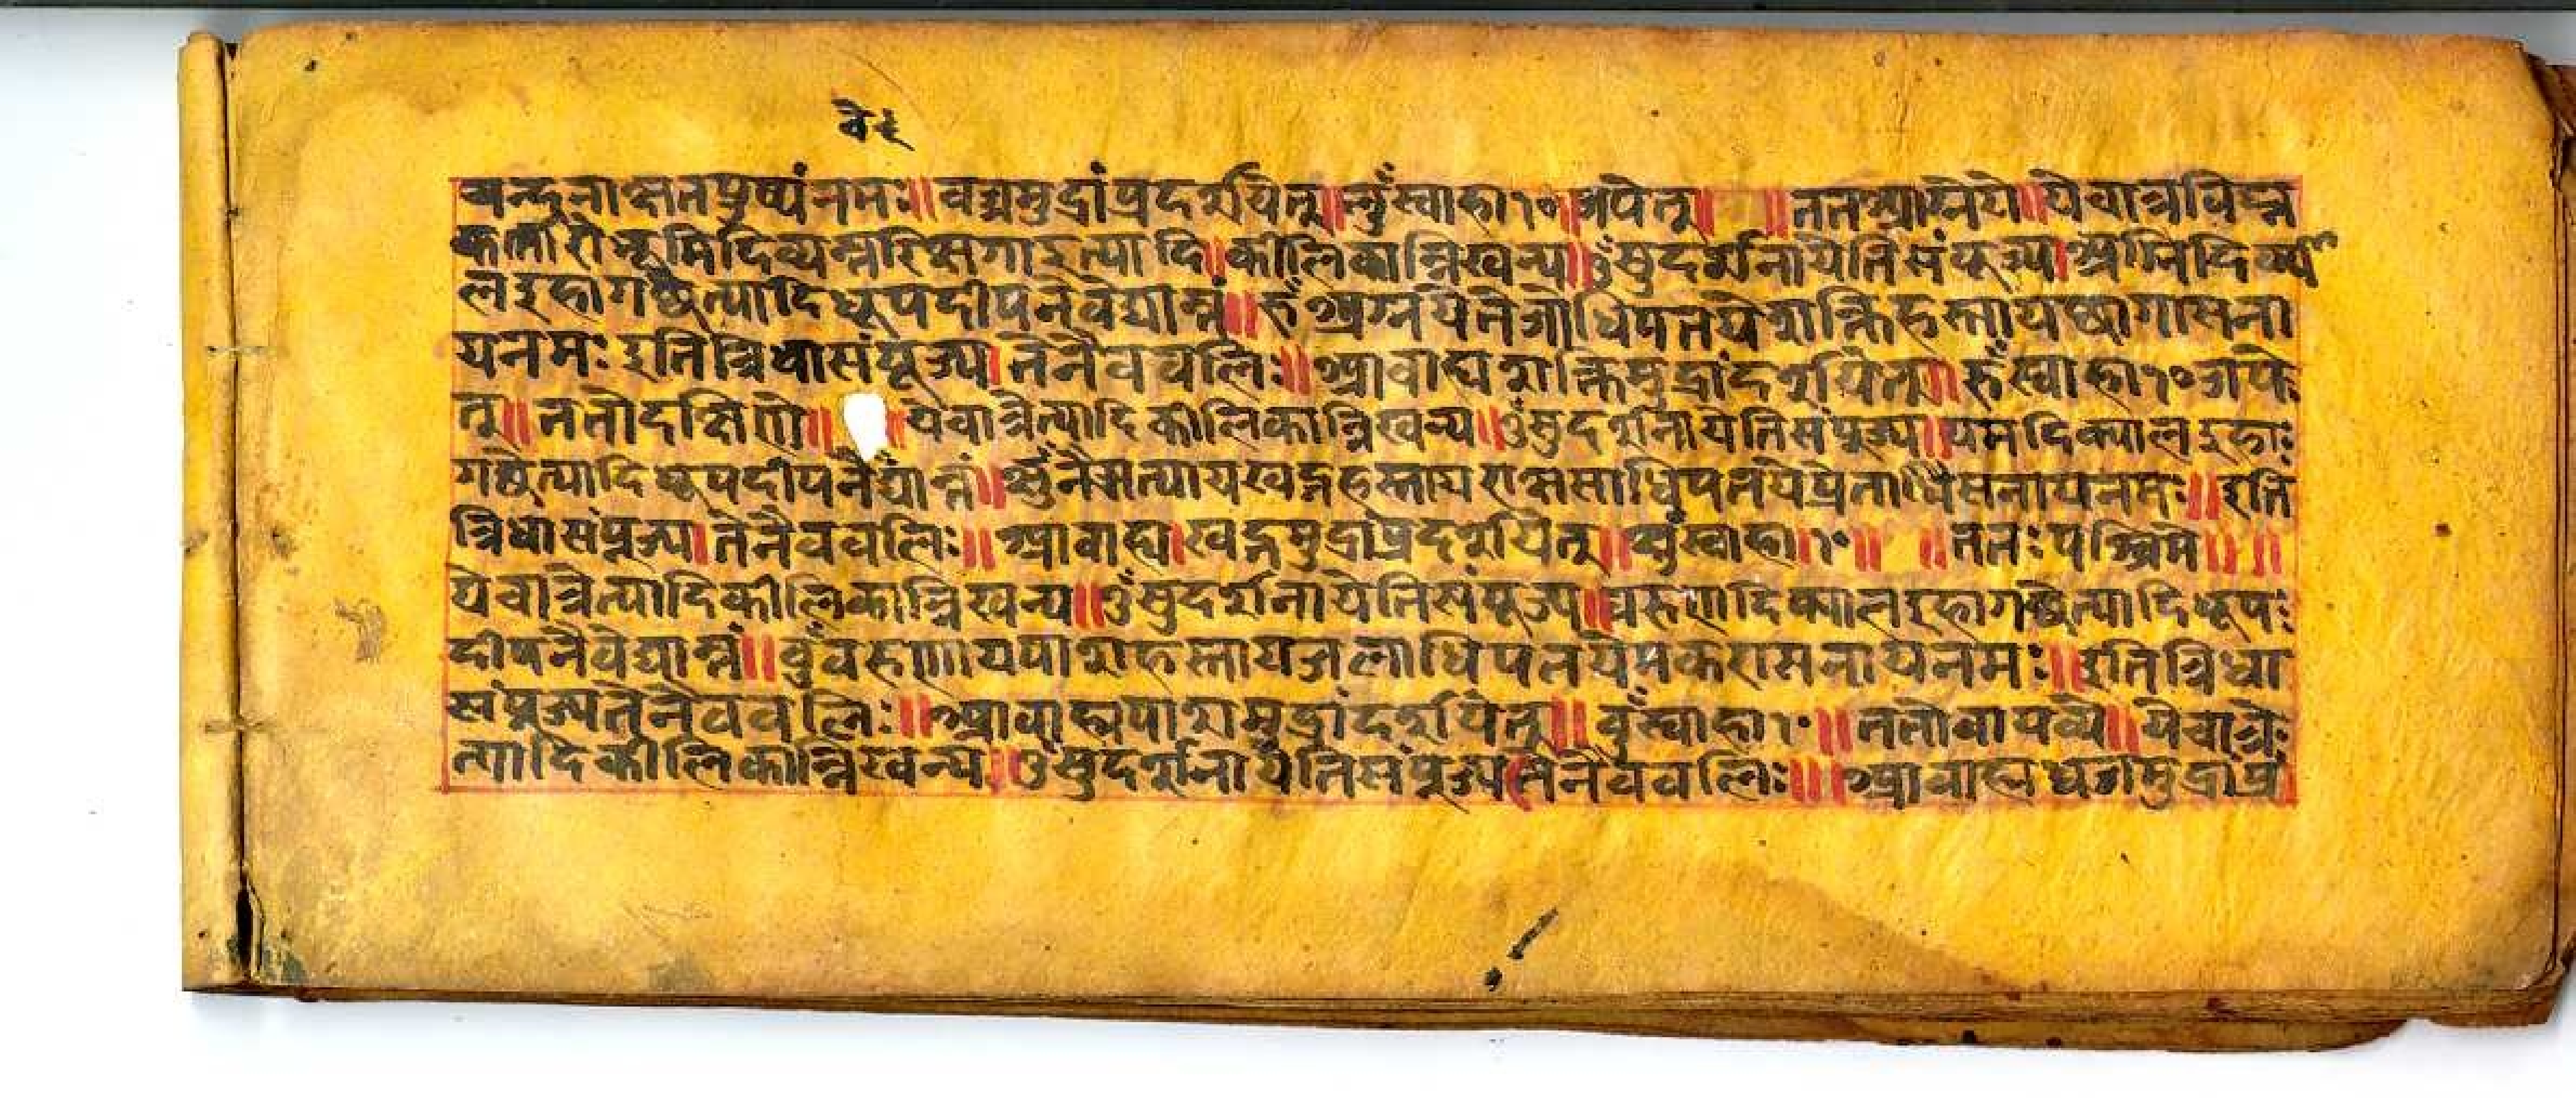 चन्दनाक्षतपुष्पंनमः॥वज्रमुद्रांप्रदर्शयेत्॥लुँस्वाहा१०॥जपेत्॥ ॥ततआग्नेये॥येचात्रविघ्न
कर्तारोभूमिदिव्यन्तरिक्षगाइत्यादि॥कीलिकान्निखन्य॥ॐसुदर्शनायेतिसंपूज्य॥अग्निदिक्पा
लइहागछेत्यादिधूपदीपनैवेद्यान्नं॥रुँअग्नयेतेजोधिपतयेशक्तिहस्तायछागासना
यनमःइतित्रिधासंपूज्य।तेनैववलिः॥आवाह्यशक्तिमुद्रांदर्शयेत्॥रुँस्वाहा१०जपे
त्॥ततोदक्षिणे॥ ॥येचात्रेत्यादिकीलिकान्निखन्य॥ॐसुदर्शनायेतिसंपूज्य॥यमदिक्पालइहाः
गछेत्यादिधूपदीपनैद्यान्नं॥ नैऋत्यायखड्गहस्तायराक्षसाधिपतयेप्रेता सनायनमः॥इति
त्रिधासंपूज्य।तेनैववलिः॥आवाह्य।खड्गमुद्रांप्रदर्शयेत्॥ स्वाहा॥१०॥ ॥ततःपश्चिमे॥ ॥
येचात्रेत्यादिकीलिकान्निखन्य॥ॐसुदर्शनायेतिसंपूज्य॥वरुणदिक्पालइहागछेत्यादिधूपः
दीपनैवेद्यान्नं॥वुँवरुणायपाशहस्तायजलाधिपतयेमकरासनायनमः॥इतित्रिधा
संपूज्यतेनैववलिः॥आवाह्यपाशमुद्रांदर्शयेत्॥वुँस्वाहा१०॥ततोवायव्ये॥येचात्रेः
त्यादिकीलिकान्निखन्य॥ॐसुदर्शनायेतिसंपूज्य।तेनैववलिः॥आवाह्यध्वजमुद्रांप्र